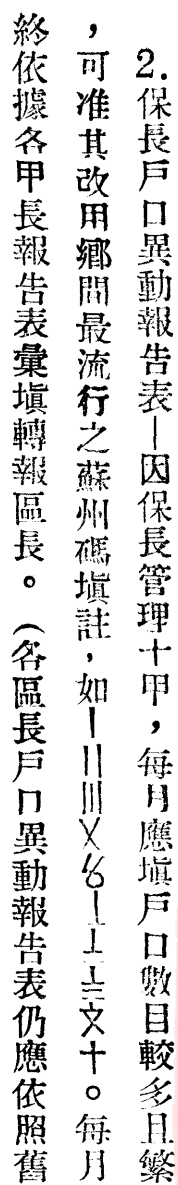 2.保長戶口異動報告表—因保長管理十甲，每月應塡戶口數目較多且繁
，可准其改用鄉間最流行之蘇州碼塡註，如〡〢〣〤〥〦〧〨〩十。每月
終依據各甲長報告表彙塡轉報區長。（各區長戶口異動報告表仍應依照舊